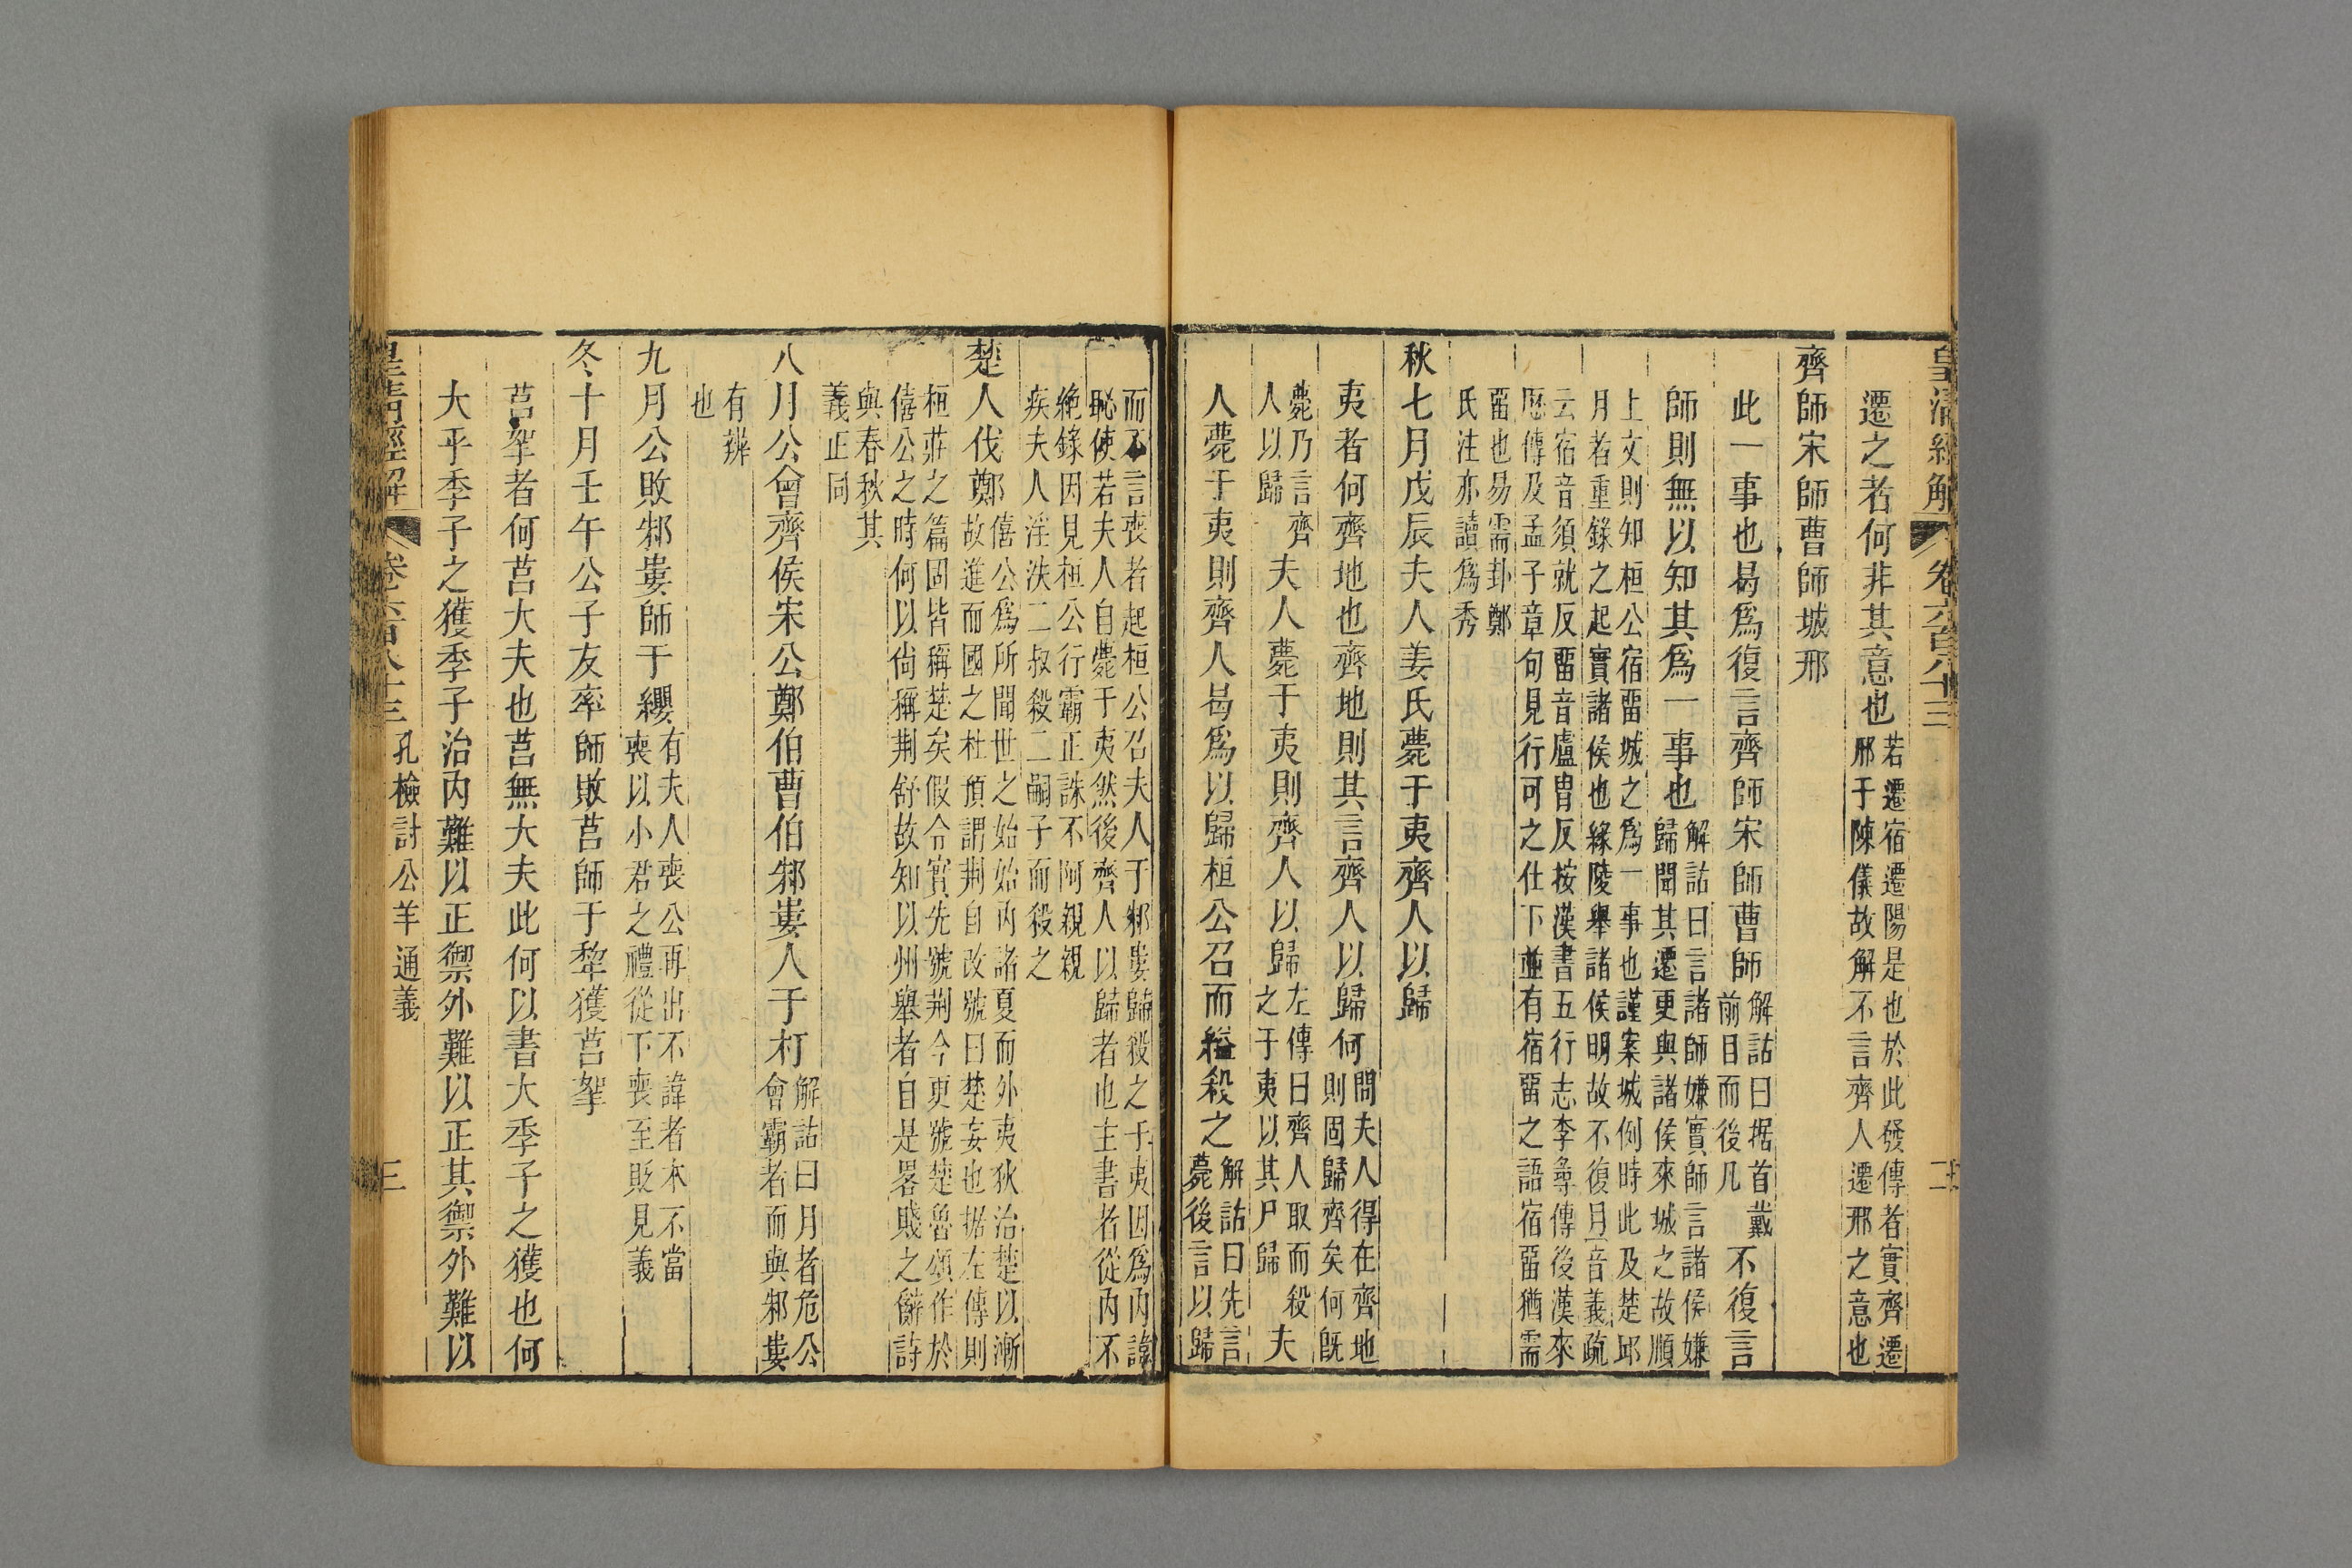 皇清經解 卷六百八十三 二
遷之者何非其意也若遷宿遷陽是也於此發傳者實齊遷
邢于陳儀故解不言齊人遷邢之意也
齊師宋師曹師城邢
此一事也曷爲復言齊師宋師曹師解詁曰据首戴
前目而後凡不復言
師則無以知其爲一事也解詁曰言諸師嫌實師言諸侯嫌
歸聞其遷更與諸侯來城之故順
上文則知桓公宿畱城之爲一事也謹案城例時此及楚邱
月者重錄之起實諸侯也緣陵舉諸侯明故不復月音義疏
云宿音須就反畱音盧胄反按漢書五行志李尋傳後漢來
厯傳及孟子章句見行可之仕下並有宿畱之語宿畱猶需
畱也易需卦鄭
氏注亦讀爲秀
秋七月戊辰夫人姜氏薨于夷齊人以歸
夷者何齊地也齊地則其言齊人以歸何問夫人得在齊地
則固歸齊矣何旣
薨乃言齊
人以歸夫人薨于夷則齊人以歸左傳曰齊人取而殺
之于夷以其尸歸夫
人薨于夷則齊人曷爲以歸桓公召而縊殺之解詁曰先言
薨後言以歸
而不言喪者起桓公召夫人于邾婁歸殺之于夷因爲内諱
恥使若夫人自薨于夷然後齊人以歸者也主書者從内不
絶錄因見桓公行霸正誅不阿親親
疾夫人淫泆二叔殺二嗣子而殺之
楚人伐鄭僖公爲所聞世之始始内諸夏而外夷狄治楚以漸
故進而國之杜預謂荆自改號曰楚妄也据左傳則
桓莊之篇固皆稱楚矣假令實先號荆今更號楚魯頌作於
僖公之時何以尙稱荆舒故知以州舉者自是畧賤之辭詩
與春秋其
義正同
八月公會齊侯宋公鄭伯曹伯邾婁人于朾解詁曰月者危公
會霸者而與邾婁
有辨
也
九月公敗邾婁師于纓有夫人喪公再出不諱者本不當
喪以小君之禮從下喪至貶見義
冬十月壬午公子友率師敗莒師于犂獲莒挐
莒挐者何莒大夫也莒無大夫此何以書大季子之獲也何
大乎季子之獲季子治内難以正禦外難以正其禦外難以
皇清經解 卷六百八十三 孔檢討公羊通義 三